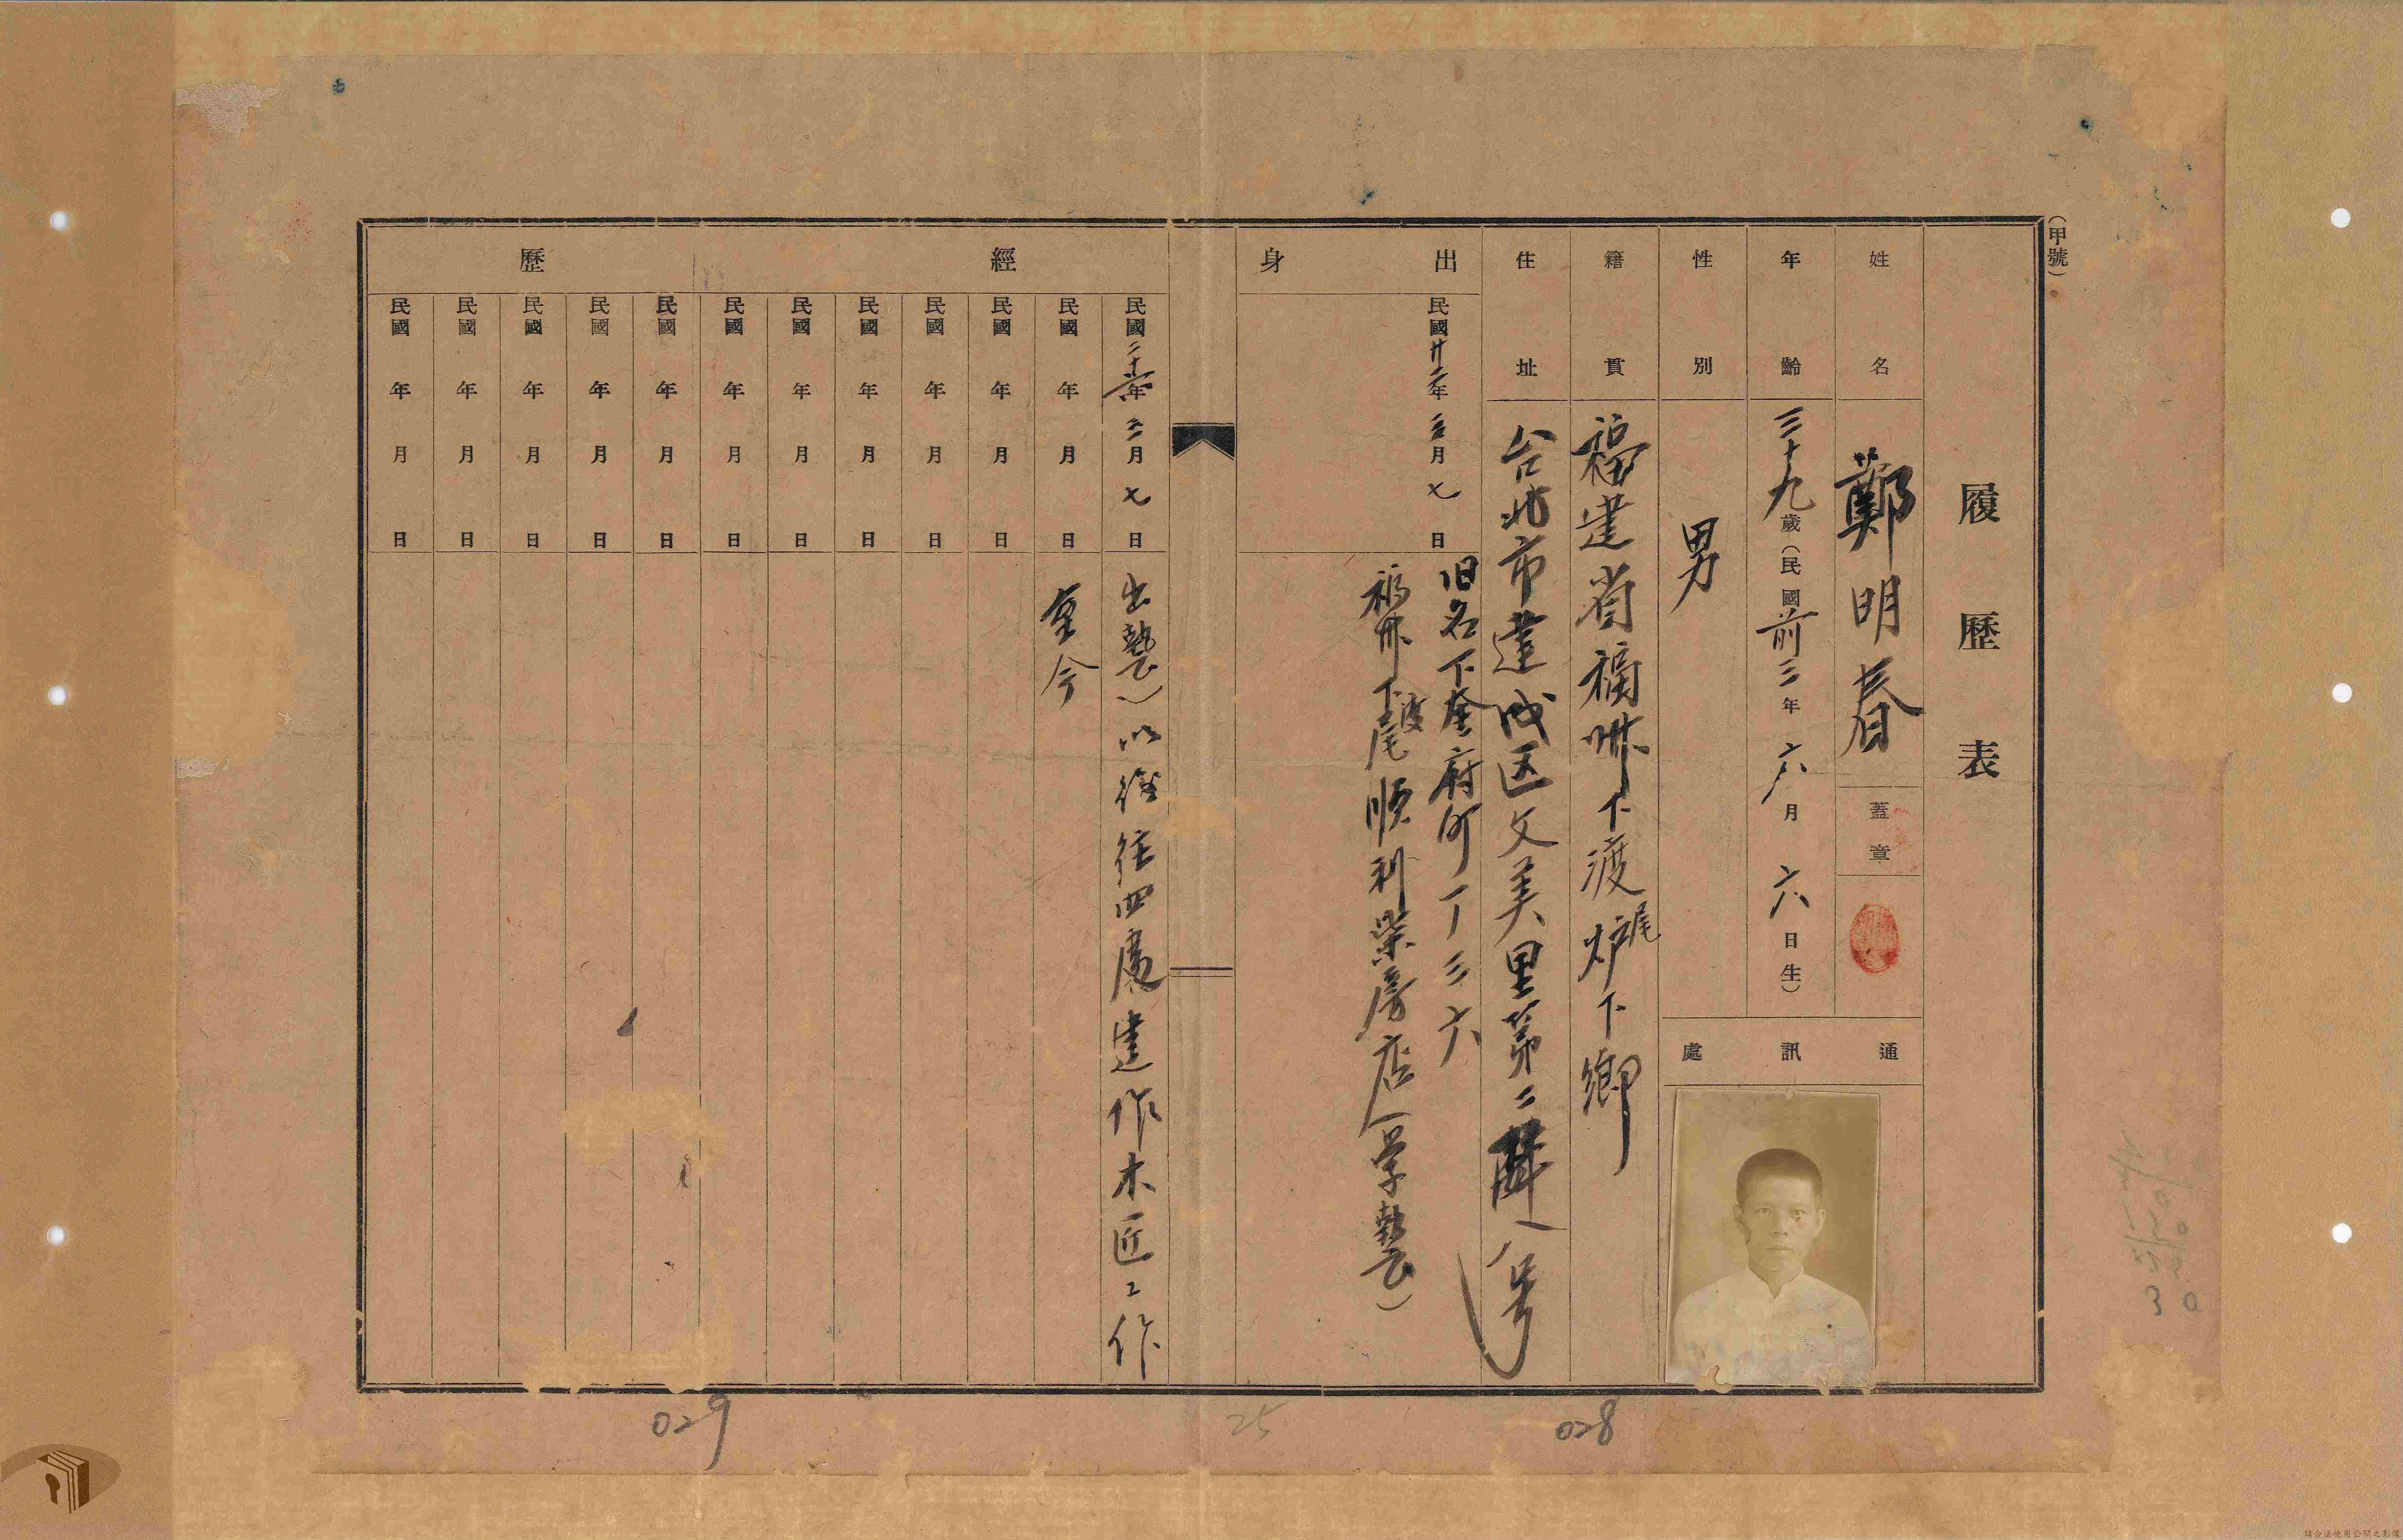 (甲號)
履歷表
姓名 鄭明春 蓋章
年齡 三十九歲(民國前三年六月六日生)
性別 男
通訊處
籍貫 福建省福州下渡尾炉下鄉
住址 台北市建成区文美里第二鄰 号
旧名下奎府町一丁三六
出身
民國廿二年 月七日
福州下渡尾順利柴房店(學藝)
經歷
民國二十六年三月七日 出藝)以後往四處建作木匠工作
民國 年 月 日 至今
民國 年 月 日
民國 年 月 日
民國 年 月 日
民國 年 月 日
民國 年 月 日
民國 年 月 日
民國 年 月 日
民國 年 月 日
民國 年 月 日
民國 年 月 日
028
25
029
30
請合法使用公開之影像